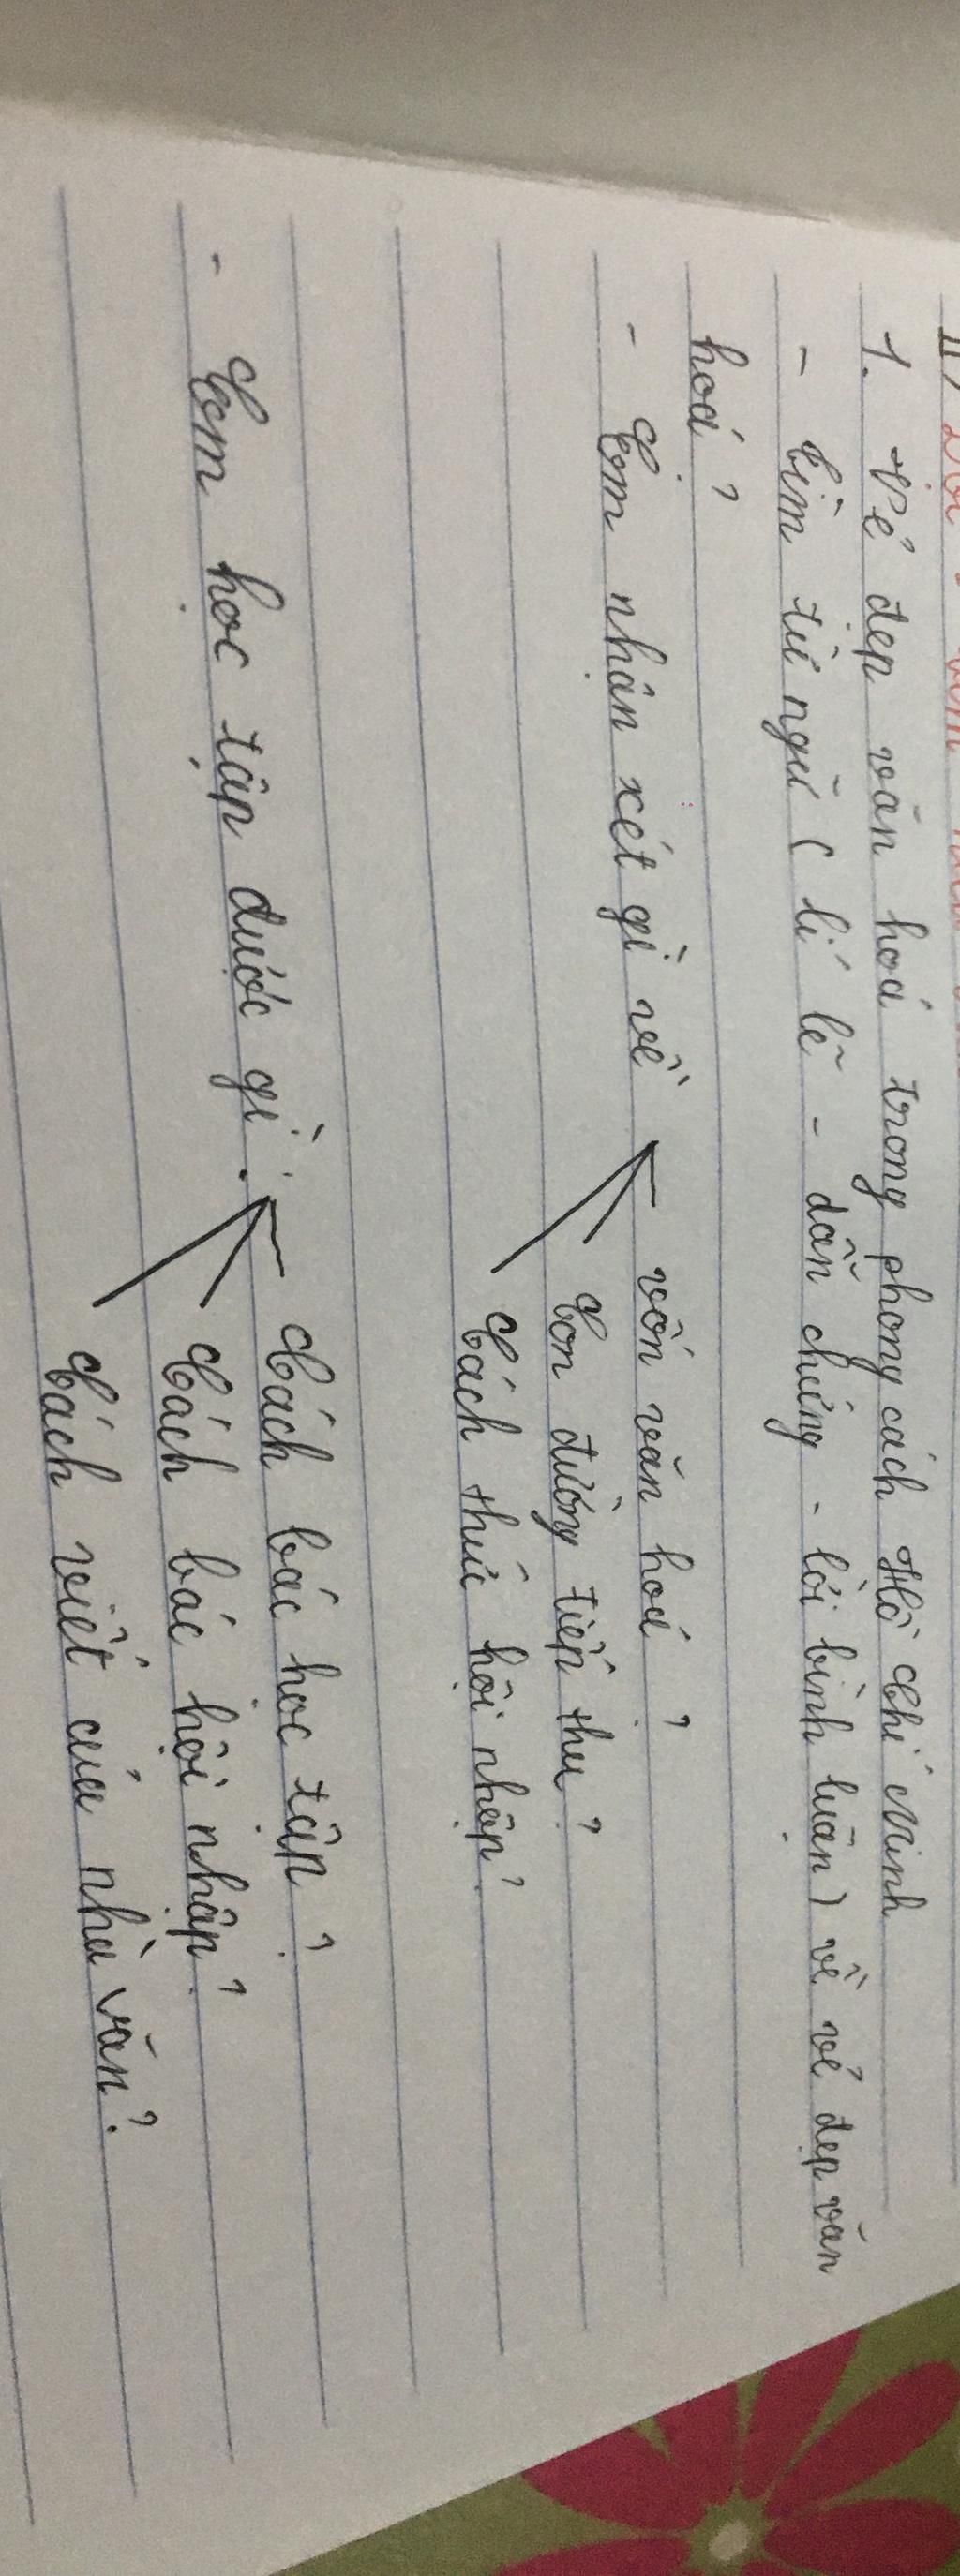 II)
1. Vẻ đẹp văn hoá trong phong cách Hồ Chí Minh
- Tìm từ ngữ ( lí lẽ - dẫn chứng - lời bình luận ) về vẻ đẹp văn
hoá ?
- Em nhận xét gì về
vốn văn hoá ?
Con đường tiếp thu ?
Cách thức hội nhập ?
- Em học tập được gì :
Cách bác học tập ?
Cách bác hội nhập ?
Cách viết của nhà văn ?